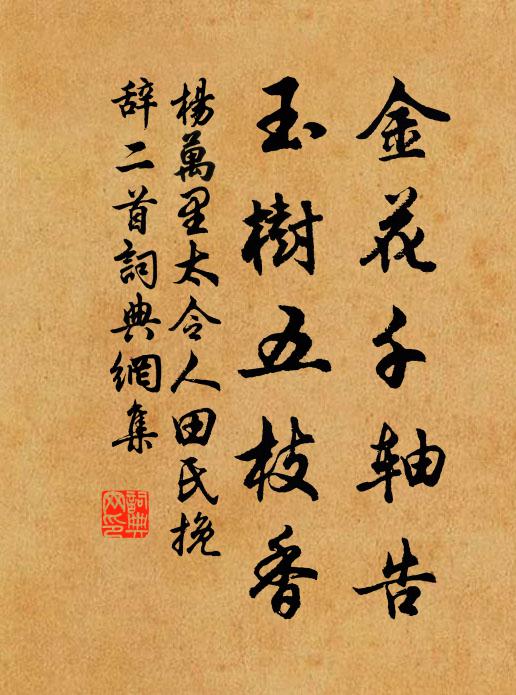 金花千軸告
玉樹五枝香
楊萬里太令人田氏挽
辭二首詞典網集
詞典網印